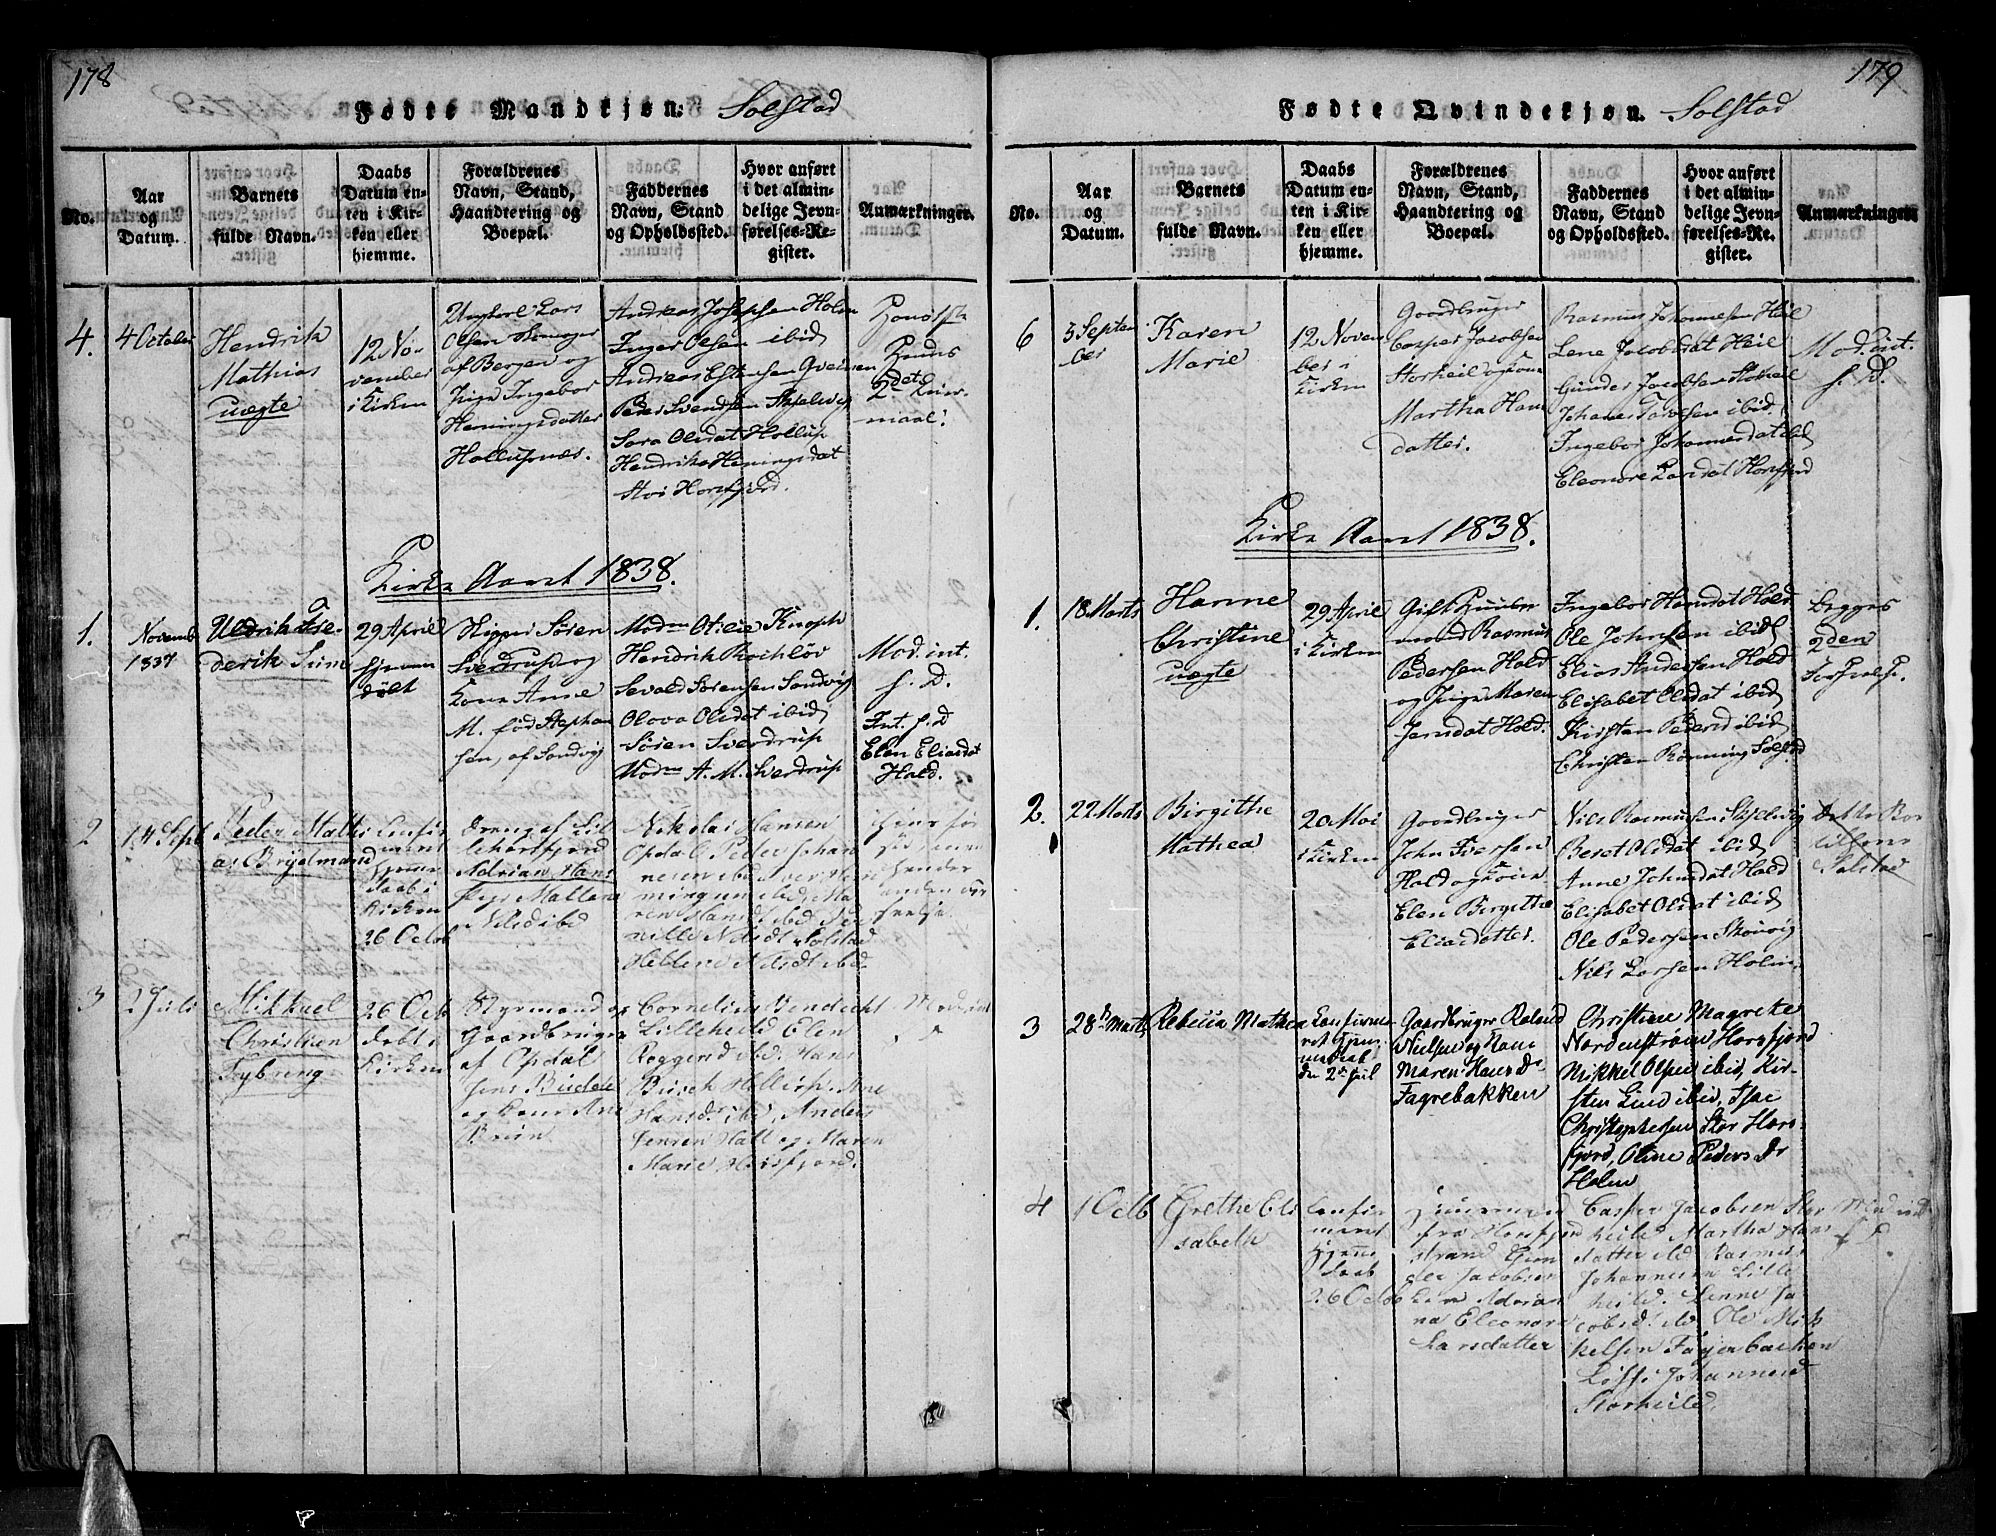 178
Fødte Mandkjøn: Solstad
No.
Aar
og
Datum.
Barnets
fulde Navn.
Daabs
Datum en-
ten i Kir-
ken eller
hjemme.
Forældrenes
Navn, Stand,
Haandtering og
Boepæl.
Faddernes
Navn, Stand
og Opholdssted.
Hvor anført
i det almin-
delige Jevn-
førelses-Re-
gister.
Anmærkninger.
4.
4 October
Hendrik
Mathias
uægte
12 No-
vember
i Kirken
Ungkarl Lars
Olsen
af Bergen og
Pige Ingebor
Heningsdatter
Hollupnæs.
Andreas Josephsen Holm
Inger Olsen ibid
Andreas Estensen
Peder Svendsen Skjelvig
Sara Olsdat Hollup
Hendrikke Heningsdat
Stor Horsfjord.
2det Leier-
maal.
Kirke Aaret 1838.
1.
Novemb
1837
Uldrik Fre-
derik Sum
29 April
hjemme
døbt
Skipper Søren
Sverdrup og
Kone Anne
M. fød Stephan
sen, af Sandvig
Modme Otilie Knoph
Hendrik
Sevald Sørensen Sandvig
Olova Olsdat ibid
Søren Sverdrup
Modme A. M. Sverdrup
Mod. int.
f. D.
Int. f. D
Elen Eliasdat
Hald.
2
14 Sept
Peder Mathi
as Brygmand
Confir
meret
Hjemme
daab i
Kirken
26 Octob
Dreng af Lil
lehorsfjord
Adrian Hans
Pige Malene
Nilsd ibd
Nikolai Hansen
Opdal Peder Johan
nesen ibd
Hansd ibd
nille Nilsdt Solstad
Hellene Nilsdt ibd
3
2 Juli
Mikkael
Christian
Fybreng
26 Octb
døbt i
Kirken
Styrmand og
Gaardbruger
af Opdal
Jens
og Kone Ane
Cornelius Bendecht
Lilleheild Elen
Roggend ibd. Hans
Busch Hellesp. Ane
Hansd ibd. Anders
Jensen Hall og Maren
Marie Horsfjord.
Mod int
179
Fødte Qvindekjøn. Solstad
No.
Aar
og
Datum.
Barnets
fulde Navn.
Daabs
Datum en-
ten i Kir-
ken eller
hjemme.
Forældrenes
Navn, Stand,
Haandtering og
Boepæl.
Faddernes
Navn, Stand
og Opholdssted.
Hvor anført
i det almin-
delige Jevn-
førelses-Re-
gister.
Anmærkninger
6
5 Septem
ber
Karen
Marie
12 Novem
ber i
Kirken
Gaardbruger
Casper Jacobsen
Storheil og Kone
Martha Hans
datter.
Rasmus Johannesen Heil
Lene Jacobsdat Heil
Gunder Jacobsen Storheil
Johanes ibid.
Ingebor Johannesdat ibd
Eleonore Larsdat Horsfjord
Mod. int.
f. D.
Kirke Aaret 1838.
1.
18 Marts
Hanne
Christine
uægte
29 April
i Kirken
Gift Huus
mand Rasmus
Pedersen Hald
og Pige Maren
Jensdat Hald.
Ingebor Hansdat Hald
Ole Johnsen ibid
Elias Andersen Hald
Elisabet Olsdat ibid
Kirsten Pedersd ibid
Christen Rønning Solstad
Begges
2den
2.
22 Marts
Birgithe
Mathea
20 Mai
i Kirken
Gaardbruger
John Iversen
Hald og Kone
Elen Birgithe
Eliasdatter.
Nils Rasmusen Skjelvig
Beret Olsdat ibid
Anne Johnsdat Hald
Elisabet Olsdat ibid
Ole Pedersen Skouvig
Nils Larsen Holm.
Solstad
3
28de Marts
Rebecca Mathea
Confirme
ret Hjem-
medaab
den 2 Jul
Gaardbruger Roland
Nielsen og Kone
Maren Hans Dr
Fagrebakken
Christine Magrete
Nordenstrøm Horsfjord
Mikkel Olsen ibid, Kir-
sten Lind ibid, Isac
Christophersen Stor Hors-
fjord, Oline Peders Dr
Holm
4
1 Octb
Grethe Eli
sabeth
Confir
meret
Hjemme
daab
26 Octob
Huusmand
fra Horsfjord
strand Gun
der Jacobsen
na Eleonora
Larsdatter
Casper Jacobsen Stor
heild Martha Hans
datter ibd. Rasmus
Johannesen Lille
heild. Lenne Ja
cobsd. ibd. Ole Mik
kelsen Fagerbakken
Johannesd
Storheild.
Mod int
f D.